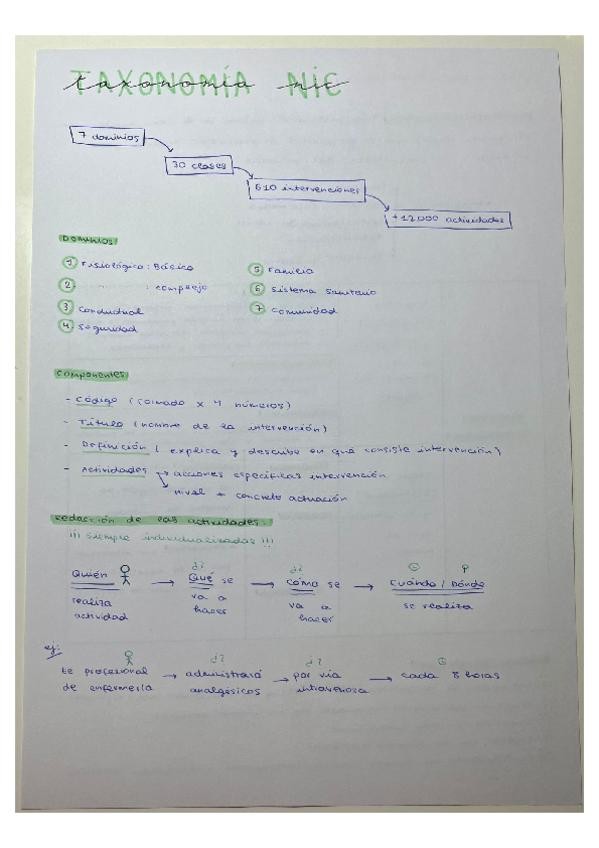 TAXONOMÍA NIC
taxonomía nic
7 dominios
30 clases
610 intervenciones
+12.000 actividades
DOMINIOS
1 Fisiológico: Básico
2 " : complejo
3 Conductual
4 Seguridad
5 Familia
6 Sistema Sanitario
7 Comunidad
Componentes
- Código (formado x 4 números)
- Título (nombre de la intervención)
- Definición (explica y describe en qué consiste intervención)
- Actividades → acciones específicas intervención
→ nivel + concreto actuación
redacción de las actividades:
!!! siempre individualizadas !!!
Quién realiza actividad
→ ¿? Qué se va a hacer
→ ¿? cómo se va a hacer
→ cuándo / Dónde se realiza
ej:
profesional de enfermería
→ ¿? administrará analgésicos
→ ¿? por vía intravenosa
→ cada 8 horas